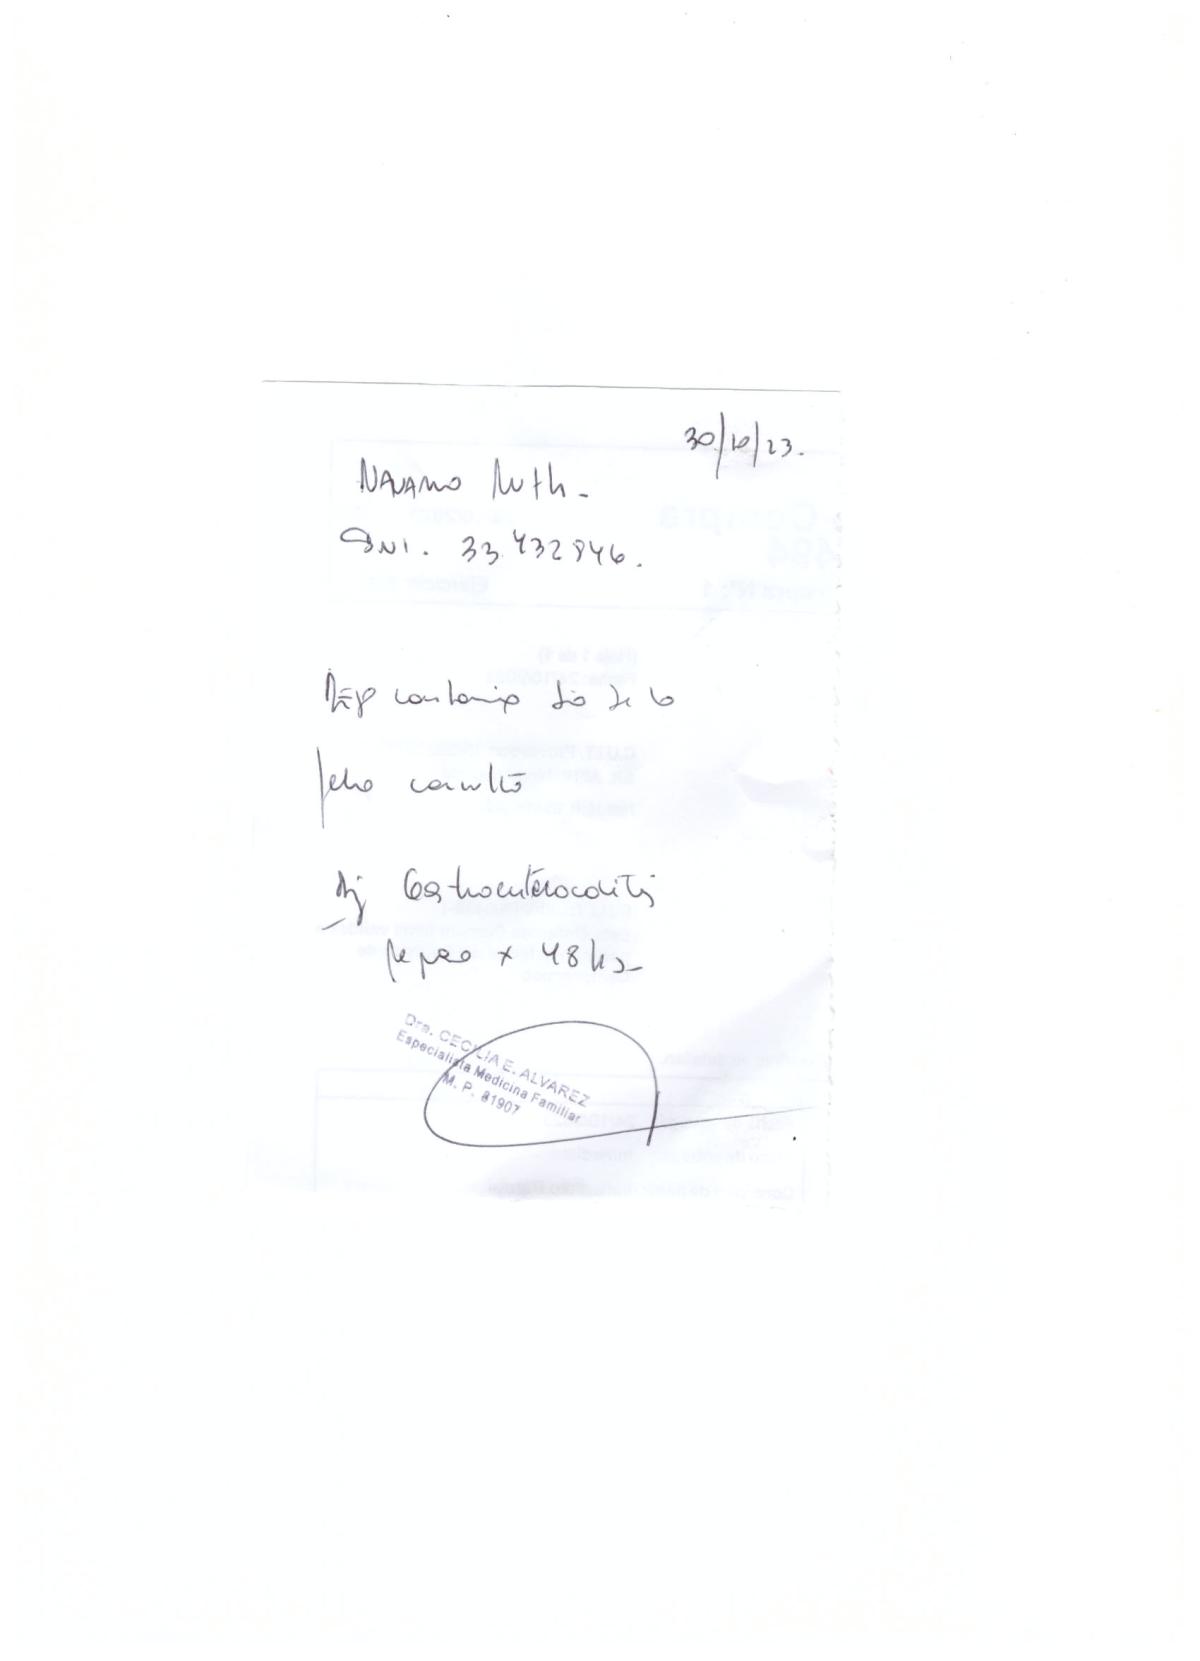 30/10/23.
Navarro Ruth.
DNI. 33.432846.
Rep constancia de la
fecha consulta
Dg Gastroenterocolitis
Reposo x 48 hs
Dra. CECILIA E. ALVAREZ
Especialista Medicina Familiar
M. P. 81907